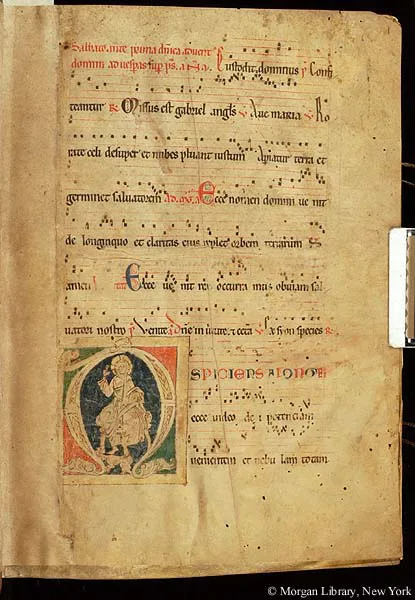 Sabbato ante prima dnica advent
domini ad vespas sup ps. a Custodit dominus p Confi
teantur R Missus est gabriel angls V Ave maria V Ro
rate celi desuper et nubes pluant iustum Apiatur terra et
germinet salvatorem Ad mg a Ecce nomen domini ve nit
de longinquo et claritas eius replet orbem terrarum
Ecce ve nit rex occurra mus obviam sal
vatori nostro p Venite V ex syon species R
SPICIENS A LONGE
ecce video dei potenciam
venientem et nebulam totam
© Morgan Library, New York